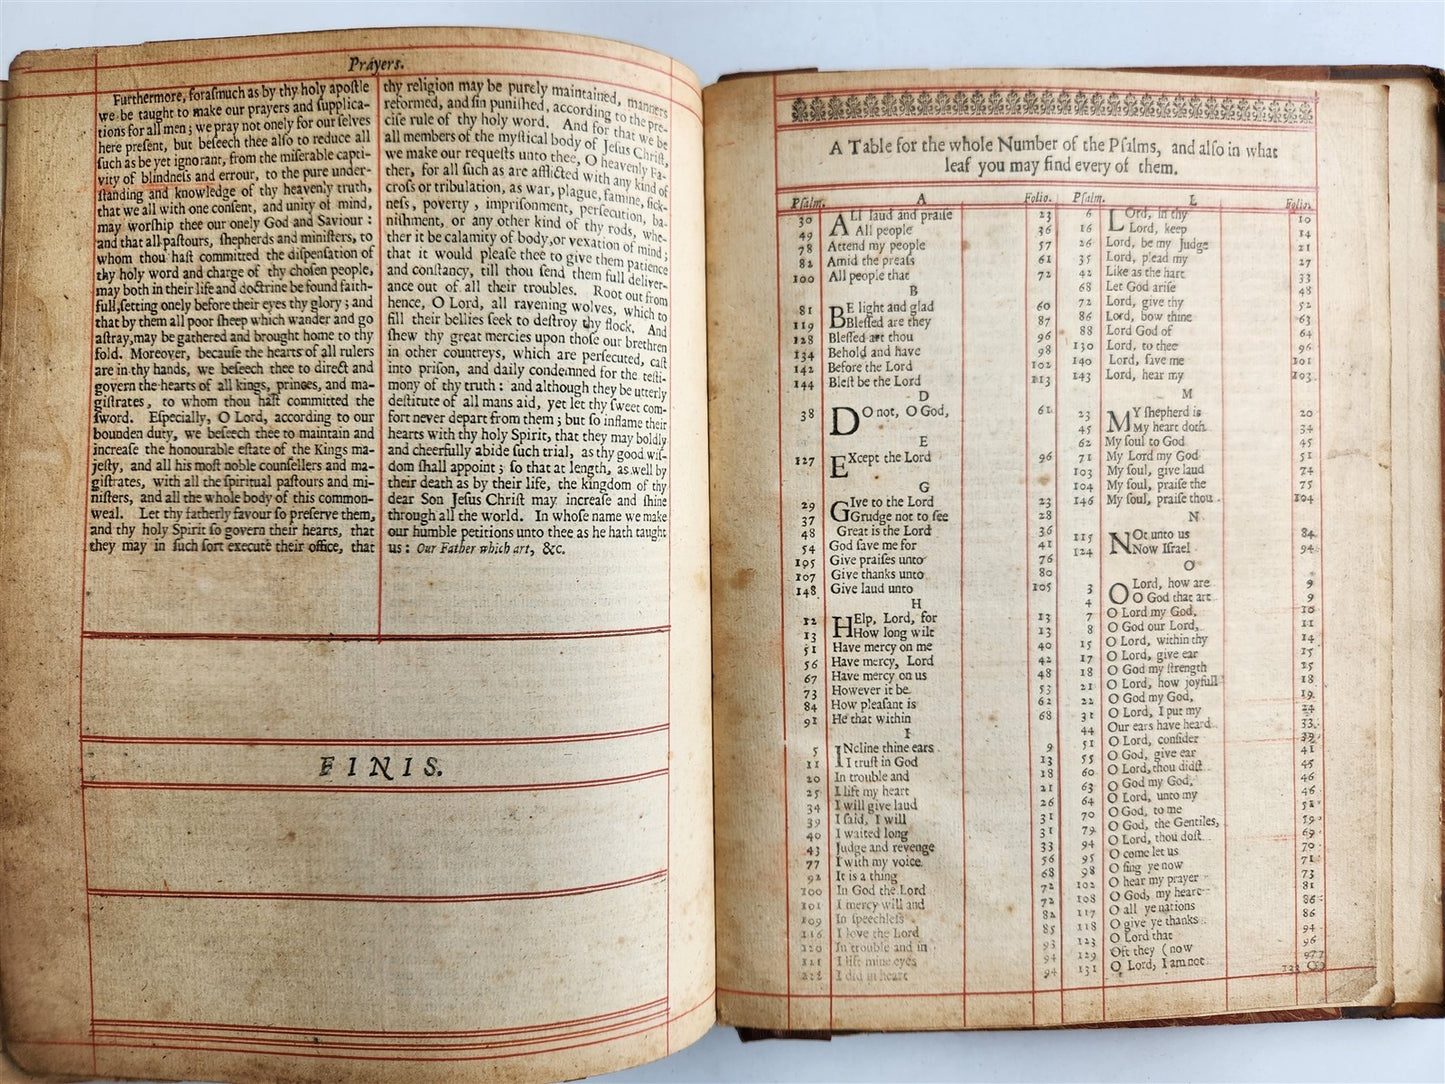 Prayers.
Furthermore, foraſmuch as by thy holy apoſtle
we be taught to make our prayers and ſupplica-
tions for all men; we pray not onely for our ſelves
here preſent, but beſeech thee alſo to reduce all
ſuch as be yet ignorant, from the miſerable capti-
vity of blindneſs and errour, to the pure under-
ſtanding and knowledge of thy heavenly truth,
that we all with one conſent, and unity of mind,
may worſhip thee our onely God and Saviour:
and that all paſtours, ſhepherds and miniſters, to
whom thou haſt committed the diſpenſation of
thy holy word and charge of thy choſen people,
may both in their life and doctrine be found faith-
full, ſetting onely before their eyes thy glory; and
that by them all poor ſheep which wander and go
aſtray, may be gathered and brought home to thy
fold. Moreover, becauſe the hearts of all rulers
are in thy hands, we beſeech thee to direct and
govern the hearts of all kings, princes, and ma-
giſtrates, to whom thou haſt committed the
ſword. Eſpecially, O Lord, according to our
bounden duty, we beſeech thee to maintain and
increaſe the honourable eſtate of the Kings ma-
jeſty, and all his moſt noble counſellers and ma-
giſtrates, with all the ſpiritual paſtours and mi-
niſters, and all the whole body of this common-
weal. Let thy fatherly favour ſo preſerve them,
and thy holy Spirit ſo govern their hearts, that
they may in ſuch ſort execute their office, that
thy religion may be purely maintained, manners
reformed, and ſin puniſhed, according to the pre-
ciſe rule of thy holy word. And for that we be
all members of the myſtical body of Jeſus Chriſt,
we make our requeſts unto thee, O heavenly Fa-
ther, for all ſuch as are afflicted with any kind of
croſs or tribulation, as war, plague, famine, ſick-
neſs, poverty, impriſonment, perſecution, ba-
niſhment, or any other kind of thy rods, whe-
ther it be calamity of body, or vexation of mind;
that it would pleaſe thee to give them patience
and conſtancy, till thou ſend them full deliver-
ance out of all their troubles. Root out from
hence, O Lord, all ravening wolves, which to
fill their bellies ſeek to deſtroy thy flock. And
ſhew thy great mercies upon thoſe our brethren
in other countreys, which are perſecuted, caſt
into priſon, and daily condemned for the teſti-
mony of thy truth: and although they be utterly
deſtitute of all mans aid, yet let thy ſweet com-
fort never depart from them; but ſo inflame their
hearts with thy holy Spirit, that they may boldly
and cheerfully abide ſuch trial, as thy good wiſ-
dom ſhall appoint; ſo that at length, as well by
their death as by their life, the kingdom of thy
dear Son Jeſus Chriſt may increaſe and ſhine
through all the world. In whoſe name we make
our humble petitions unto thee as he hath taught
us: Our Father which art, &c.
FINIS.
A Table for the whole Number of the Pſalms, and alſo in what
leaf you may find every of them.
Pſalm. A Folio.
30 ALl laud and praiſe 23
49 All people 36
78 Attend my people 57
82 Amid the preaſs 61
100 All people that 72
B
81 BE light and glad 60
119 Bleſſed are they 87
128 Bleſſed art thou 96
134 Behold and have 98
142 Before the Lord 102
144 Bleſt be the Lord 113
D
38 DO not, O God, 61
E
127 EXcept the Lord 96
G
29 GIve to the Lord 23
37 Grudge not to ſee 28
48 Great is the Lord 36
54 God ſave me for 41
105 Give praiſes unto 76
107 Give thanks unto 80
148 Give laud unto 105
H
12 HElp, Lord, for 13
13 How long wilt 13
51 Have mercy on me 40
56 Have mercy, Lord 42
67 Have mercy on us 48
73 However it be 53
84 How pleaſant is 62
91 He that within 68
I
5 INcline thine ears 9
11 I truſt in God 13
20 In trouble and 18
25 I lift my heart 21
34 I will give laud 26
39 I ſaid, I will 31
40 I waited long 31
43 Judge and revenge 33
77 I with my voice 56
92 It is a thing 68
100 In God the Lord 72
101 I mercy will and 72
109 In ſpeechleſs 82
116 I love the Lord 85
120 In trouble and in 93
121 I lift mine eyes 94
122 I did in heart 94
Pſalm. L Folio.
6 LOrd, in thy 10
16 Lord, keep 14
26 Lord, be my Judge 21
35 Lord, plead my 27
42 Like as the hart 33
68 Let God ariſe 48
72 Lord, give thy 52
86 Lord, bow thine 63
88 Lord God of 64
130 Lord, to thee 96
140 Lord, ſave me 101
143 Lord, hear my 103
M
23 MY ſhepherd is 20
45 My heart doth 34
62 My ſoul to God 45
71 My Lord my God 51
103 My ſoul, give laud 74
104 My ſoul, praiſe the 75
146 My ſoul, praiſe thou 104
N
115 NOt unto us 84
124 Now Iſrael 94
O
3 O Lord, how are 9
4 O God that art 9
7 O Lord my God, 10
8 O God our Lord, 11
15 O Lord, within thy 14
17 O Lord, give ear 15
18 O God my ſtrength 15
21 O Lord, how joyfull 18
22 O God my God, 19
31 O Lord, I put my 24
44 Our ears have heard 33
51 O Lord, conſider 39
55 O God, give ear 41
60 O Lord, thou didſt 45
63 O God my God, 46
64 O Lord, unto my 46
70 O God, to me 51
79 O God, the Gentiles, 59
94 O Lord, thou doſt 69
95 O come let us 70
98 O ſing ye now 71
102 O hear my prayer 73
108 O God, my heart 81
117 O all ye nations 86
118 O give ye thanks 86
123 O Lord that 94
129 Oft they (now 96
131 O Lord, I am not 97